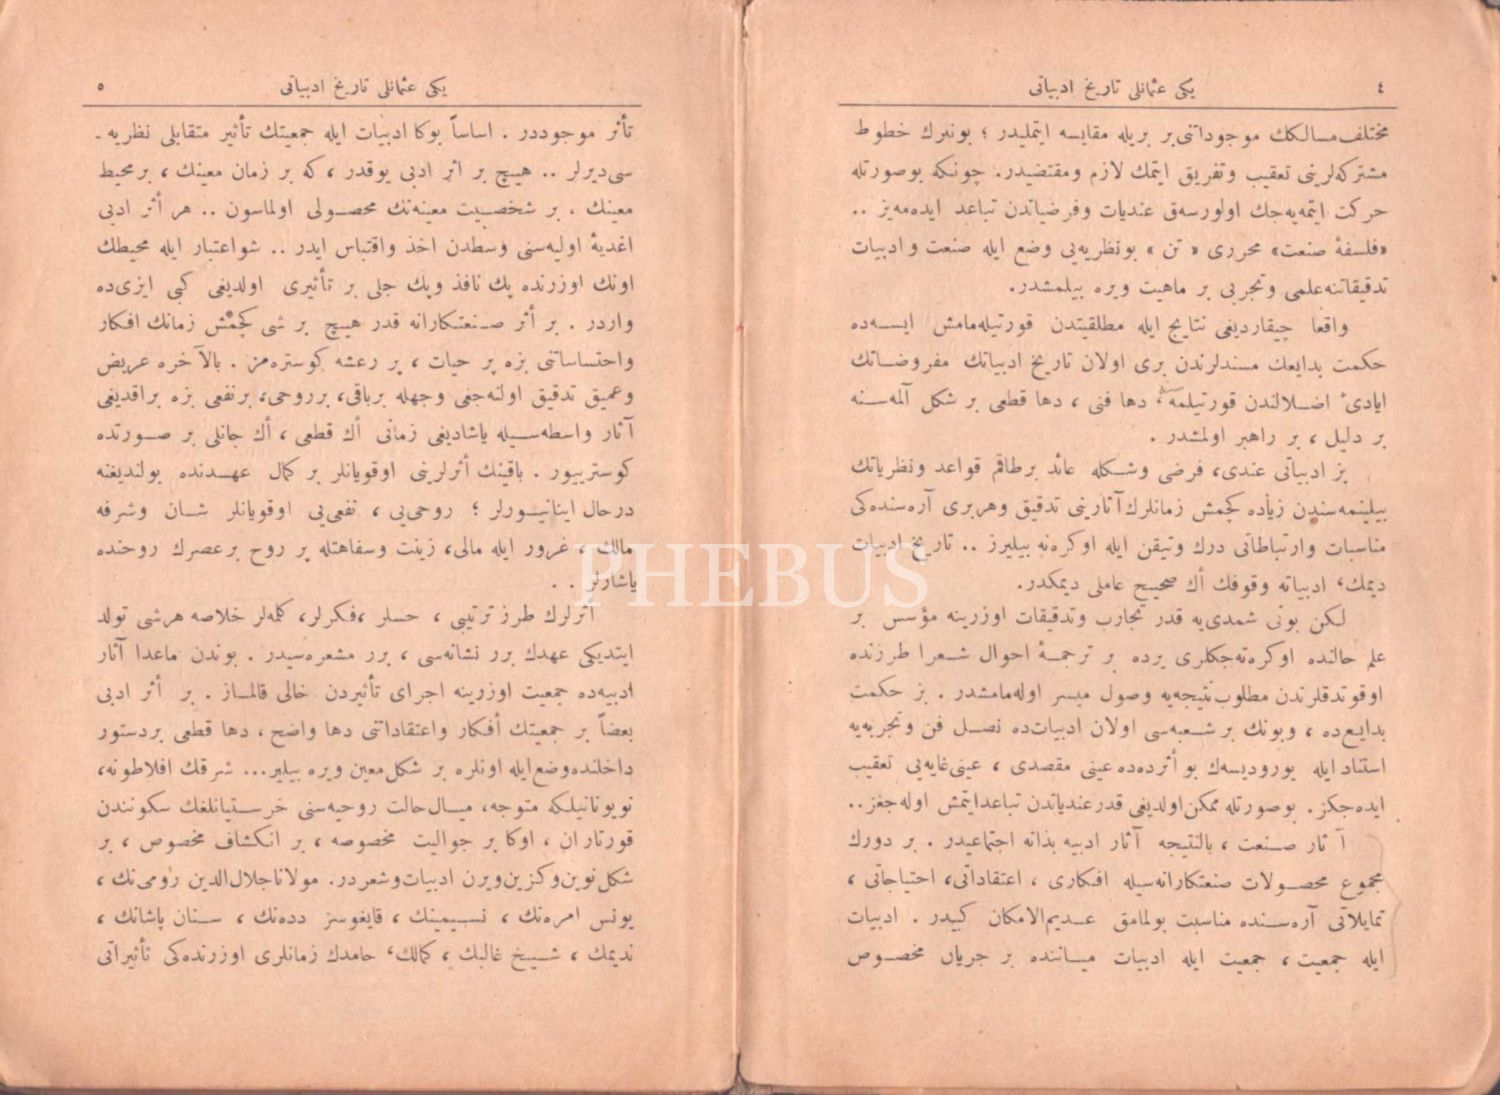 ٤ يكی عثمانلی تاريخ ادبياتی
مختلف مسالكك موجوداتنی بر بريله مقايسه ايتمليدر ؛ بونلرك خطوط
مشتركه‌لرينی تعقيب وتفريق ايتمك لازم ومقتضيدر. چونكه بوصورتله
حركت ايتمه‌يه‌جك اولورسه‌ق عنديات وفرضياتدن تباعد ايده‌مه‌يز ..
«فلسفهٔ صنعت» محرری « تن » بونظريه‌يی وضع ايله صنعت وادبيات
تدقيقاتنه علمی وتجربی بر ماهيت ويره بيلمشدر.
واقعا چيقارديغی نتايج ايله مطلقيتدن قورتيله‌مامش ايسه‌ده
حكمت بدايعك مسندلرندن بری اولان تاريخ ادبياتك مفروضاتك
ايادیٔ اضلالندن قورتيلمه‌سنه، دها فنی ، دها قطعی بر شكل آلمه‌سنه
بر دليل ، بر راهبر اولمشدر .
بز ادبياتی عندی، فرضی وشكله عائد برطاقم قواعد ونظرياتك
بيلينمه‌سندن زياده كچمش زمانلرك آثارينی تدقيق وهربری آره‌سنده‌كی
مناسبات وارتباطاتی درك وتيقن ايله اوكره‌نه بيليرز .. تاريخ ادبيات
ديمك، ادبياته وقوفك اڭ صحيح عاملی ديمكدر.
لكن بونی شمدی‌يه قدر تجارب وتدقيقات اوزرينه مؤسس بر
علم حالنده اوكره‌ته‌جكلری يرده بر ترجمهٔ احوال شعرا طرزنده
اوقوتدقلرندن مطلوب نتيجه‌يه وصول ميسر اوله‌مامشدر . بز حكمت
بدايع‌ده ، وبونك بر شعبه‌سی اولان ادبيات‌ده نصل فن وتجربه‌يه
استناد ايله يوروديسه‌ك بو أثرده‌ده عينی مقصدی ، عينی غايه‌يی تعقيب
ايده‌جكز. بوصورتله ممكن اولديغی قدر عندياتدن تباعد ايتمش اوله‌جغز..
آثار صنعت ، بالنتيجه آثار ادبيه بذاته اجتماعيدر . بر دورك
مجموع محصولات صنعتكارانه‌سيله افكاری ، اعتقاداتی، احتياجاتی ،
تمايلاتی آره‌سنده مناسبت بولمامق عديم‌الامكان كبيدر . ادبيات
ايله جمعيت ، جمعيت ايله ادبيات ميـاننده بر جريان مخصوص
يكی عثمانلی تاريخ ادبياتی ٥
تأثر موجوددر . اساساً بوكا ادبيات ايله جمعيتك تأثير متقابلی نظريه‌ـ
سی‌ديرلر .. هيچ بر اثر ادبی يوقدر ، كه بر زمان معينك ، بر محيط
معينك ، بر شخصيت معينه‌نك محصولی اولماسون .. هر أثر ادبی
اغديهٔ اوليه‌سنی وسطدن اخذ واقتباس ايدر .. شو اعتبار ايله محيطك
اونك اوزرنده پك نافذ وپك جلی بر تأثيری اولديغی كبی ايزی‌ده
واردر . بر أثر صنعتكارانه قدر هيچ بر شی كچمش زمانك افكار
واحتساساتنی بزه پر حيات ، پر رعشه كوستره‌مز . بالآخره عريض
وعميق تدقيق اولنه‌جغی وجهله برباقی، برروحی، برنفعی بزه براقديغی
آثار واسطه‌سيله ياشاديغی زمانی اڭ قطعی ، اڭ جانلی بر صورتده
كوسترييور . باقينك أثرلرينی اوقويانلر بر كمال عهدنده بولنديغنه
درحال اينانيورلر ؛ روحی‌يی ، نفعی‌يی اوقويانلر شان وشرفه
مالك ، غرور ايله مالی، زينت وسفاهتله پر روح بر عصرك روحنده
ياشارلر . .
أثرلرك طرز ترتيبی ، حسلر ، فكرلر، كلمه‌لر خلاصه هرشی تولد
ايتديكی عهدك برر نشانه‌سی ، برر مشعره‌سيدر . بوندن ماعدا آثار
ادبيه‌ده جمعيت اوزرينه اجرای تأثيردن خالی قالماز . بر أثر ادبی
بعضاً بر جمعيتك أفكار واعتقاداتنی دها واضح ، دها قطعی بردستور
داخلنده وضع ايله اونلره بر شكل معين ويره بيلير... شرقك افلاطونه،
نويونانيلكه متوجه، ميال حالت روحيه‌سنی خرستيانلغك سكونندن
قورتاران ، اوكا بر جواليت مخصوصه ، بر انكشاف مخصوص ، بر
شكل نوين وكزين ويرن ادبيات وشعردر. مولانا جلال‌الدين رومی‌نك ،
يونس امره‌نك ، نسيمينك ، قايغوسز دده‌نك ، سنان پاشانك ،
نديمك ، شيخ غالبك ، كمالك، حامدك زمانلری اوزرنده‌كی تأثيراتی
PHEBUS